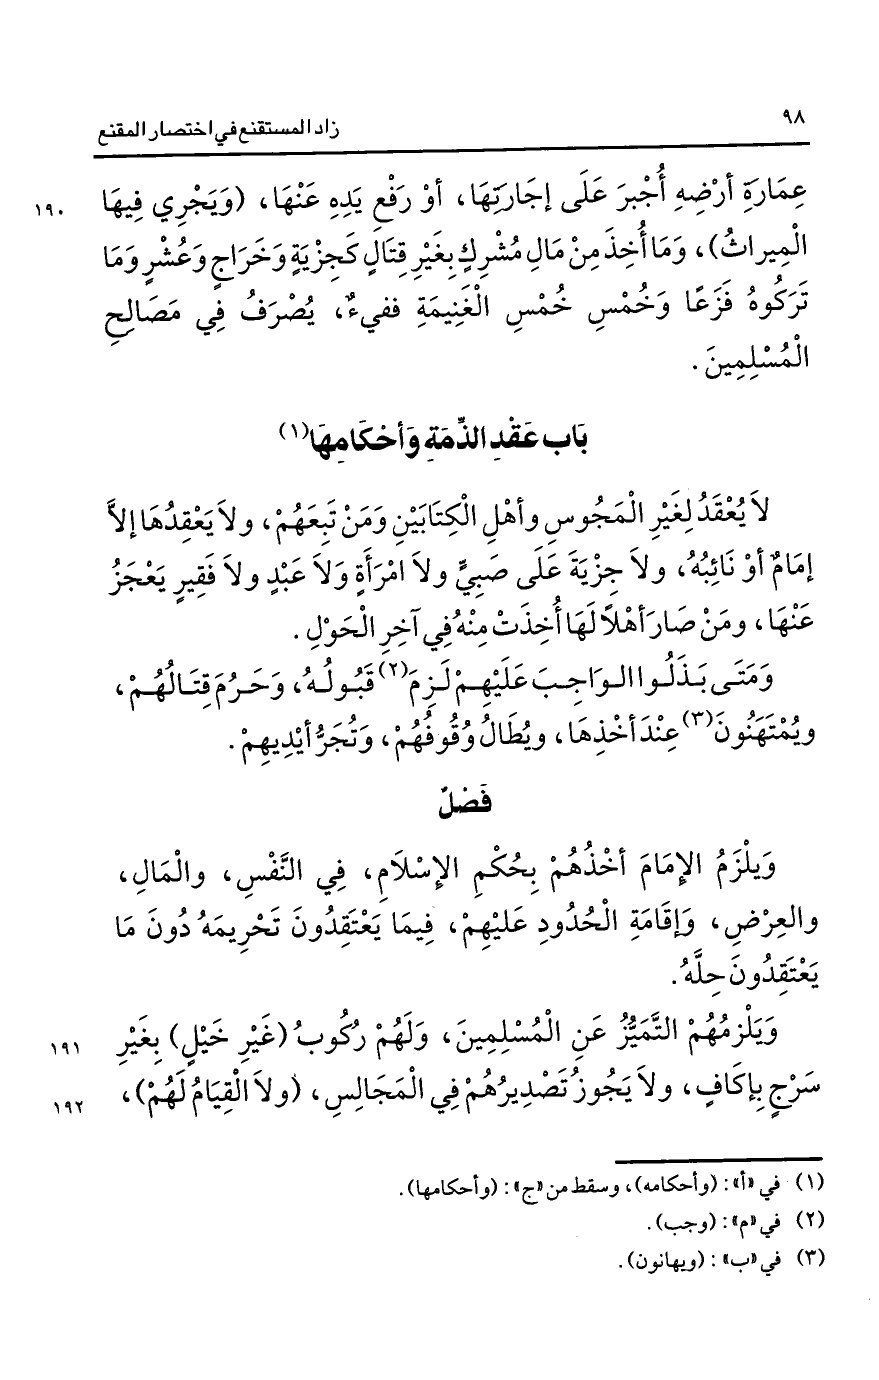 ٩٨
زاد المستقنع في اختصار المقنع
عِمَارَةِ أرْضِهِ أُجْبِرَ عَلَى إجَارَتِهَا، أوْ رَفْعِ يَدِهِ عَنْهَا، (وَيَجْرِي فِيهَا ١٩٠
الْمِيراثُ)، وَمَا أُخِذَ مِنْ مَالِ مُشْرِكٍ بِغَيْرِ قِتَالٍ كَجِزْيَةٍ وَخَرَاجٍ وَعُشْرٍ وَمَا
تَرَكُوهُ فَزَعًا وَخُمْسِ خُمْسِ الْغَنِيمَةِ ففيءٌ، يُصْرَفُ فِي مَصَالِحِ
الْمُسْلِمِينَ.
بَاب عَقْدِ الذِّمَةِ وَأحْكَامِهَا(١)
لاَ يُعْقَدُ لِغَيْرِ الْمَجُوسِ وأهْلِ الْكِتَابَيْنِ وَمَنْ تَبِعَهُمْ، ولاَ يَعْقِدُهَا إلاَّ
إمَامٌ أوْ نَائِبُهُ، ولاَ جِزْيَةَ عَلَى صَبِيٍّ ولاَ امْرَأَةٍ وَلاَ عَبْدٍ ولاَ فَقِيرٍ يَعْجَزُ
عَنْهَا، ومَنْ صَارَ أهْلاً لَهَا أُخِذَتْ مِنْهُ فِي آخِرِ الْحَوْلِ.
وَمَتَى بَذَلُوا الوَاجِبَ عَلَيْهِمْ لَزِمَ(٢) قَبُولُهُ، وَحَرُمَ قِتَالُهُمْ،
ويُمْتَهَنُونَ(٣) عِنْدَ أخْذِهَا، ويُطَالُ وُقُوفُهُمْ، وَتُجَرُّ أيْدِيهِمْ.
فَصْلٌ
وَيلْزَمُ الإمَامَ أخْذُهُمْ بِحُكْمِ الإسْلَامِ، فِي النَّفْسِ، والْمَالِ،
والعِرْضِ، وَإقَامَةِ الْحُدُودِ عَلَيْهِمْ، فِيمَا يَعْتَقِدُونَ تَحْرِيمَهُ دُونَ مَا
يَعْتَقِدُونَ حِلَّهُ.
وَيَلْزمُهُمْ التَّمَيُّزُ عَنِ الْمُسْلِمِينَ، وَلَهُمْ رُكُوبُ (غَيْرِ خَيْلٍ) بِغَيْرِ ١٩١
سَرْجٍ بِإكَافٍ، ولاَ يَجُوزُ تَصْدِيرُهُمْ فِي الْمَجَالِسِ، (ولاَ الْقِيَامُ لَهُمْ)، ١٩٢
(١) في «أ»: (وأحكامه)، وسقط من «ج»: (وأحكامها).
(٢) في «م»: (وجب).
(٣) في «ب»: (ويهانون).